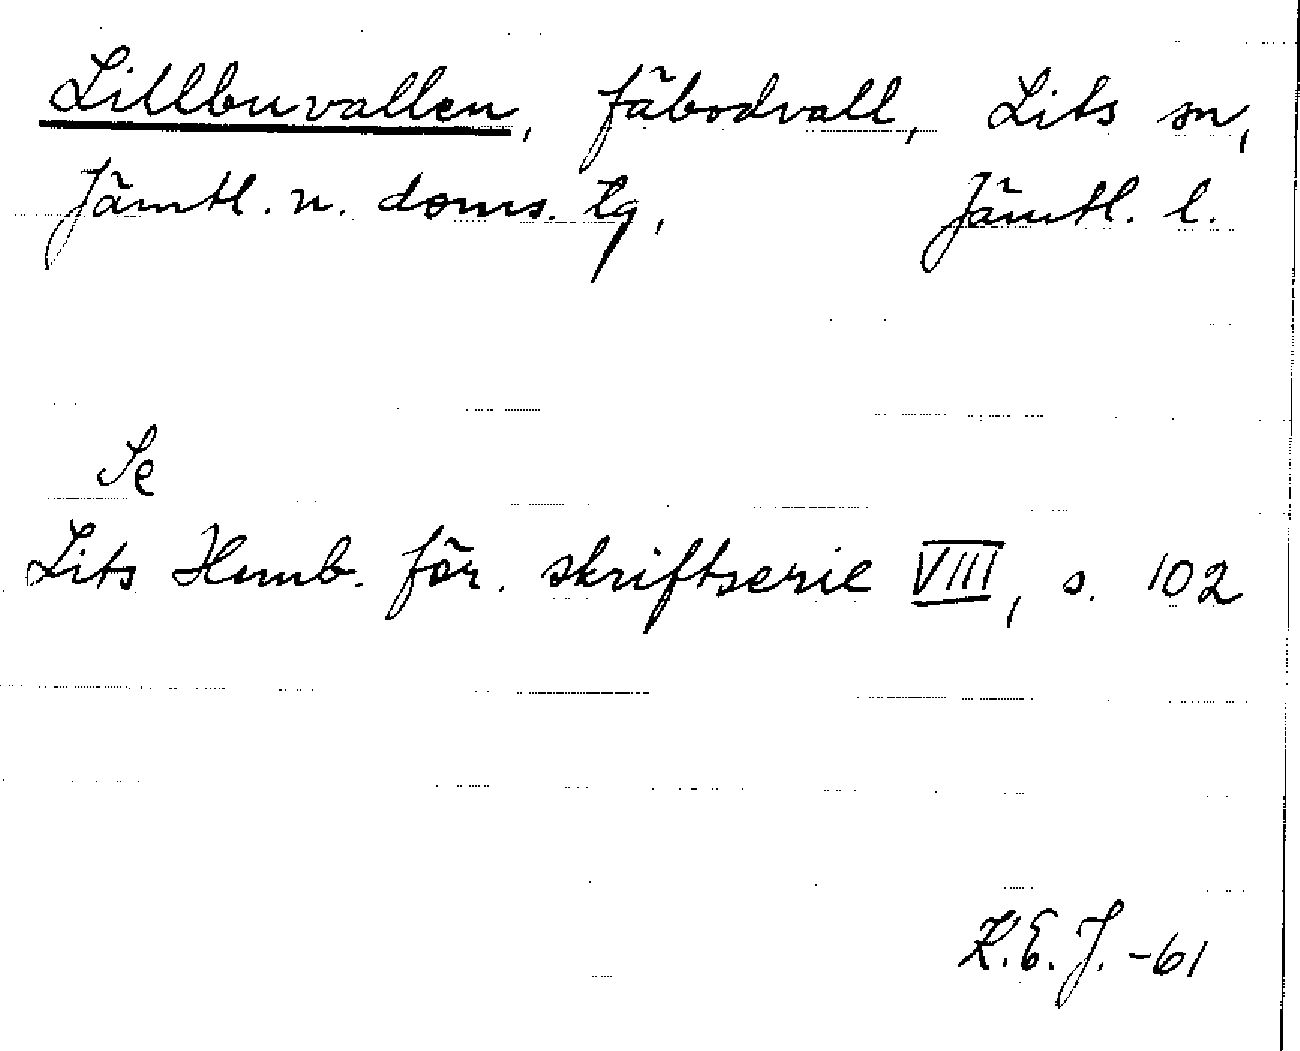 Lillbuvallen, fäbodvall, Lits sn,
Jämtl. n. doms. tg, Jämtl. l.
Se
Lits Hemb. för. skriftserie VIII, s. 102
K.E.J. -61